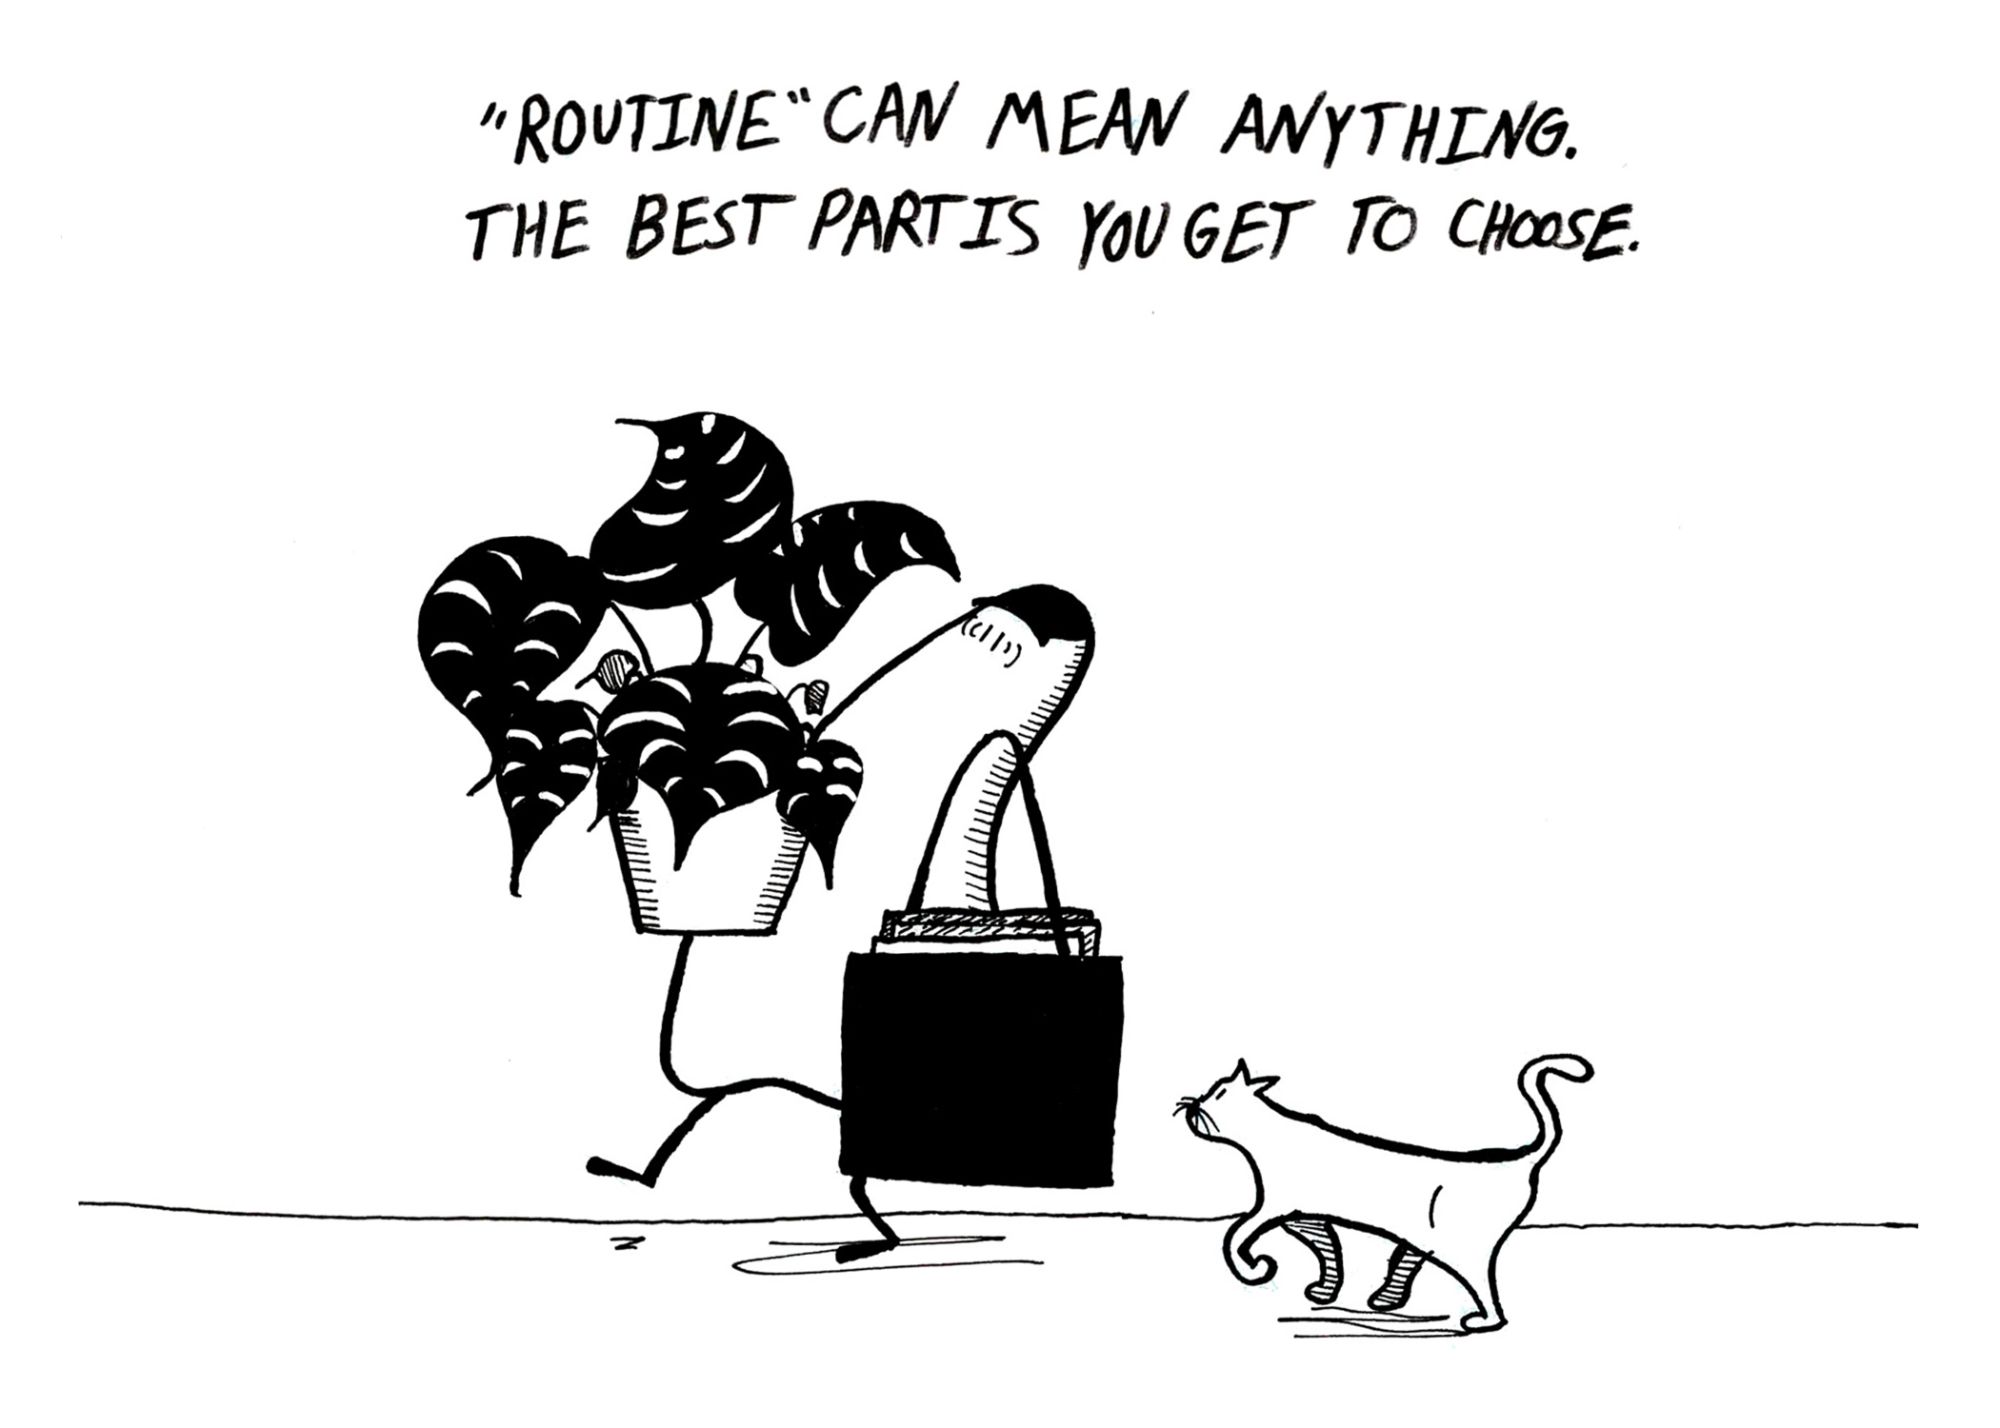 "ROUTINE" CAN MEAN ANYTHING.
THE BEST PART IS YOU GET TO CHOOSE.